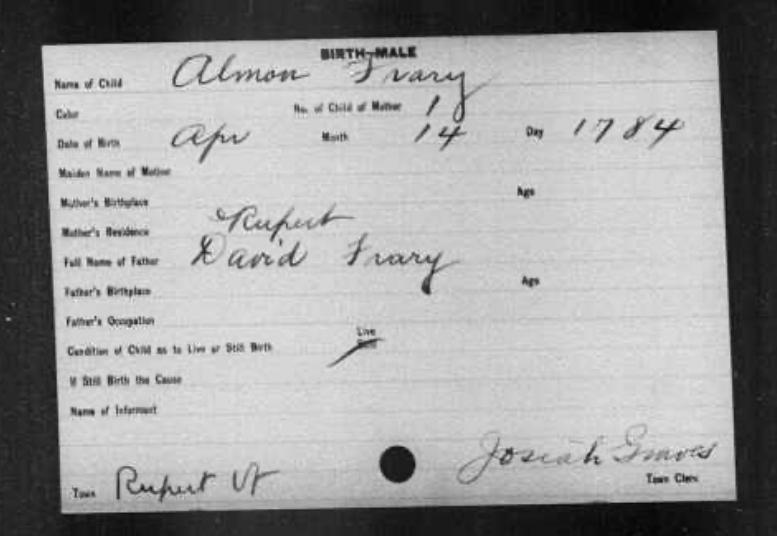 BIRTH—MALE
Name of Child Almon Frary
Color No. of Child of Mother 1
Date of Birth Apr Month 14 Day 1784
Maiden Name of Mother
Mother's Birthplace Age
Mother's Residence Rupert
Full Name of Father David Frary
Father's Birthplace Age
Father's Occupation
Live
Condition of Child as to Live or Still Birth Still
If Still Birth the Cause
Name of Informant
Town Rupert Vt Josiah Graves
Town Clerk